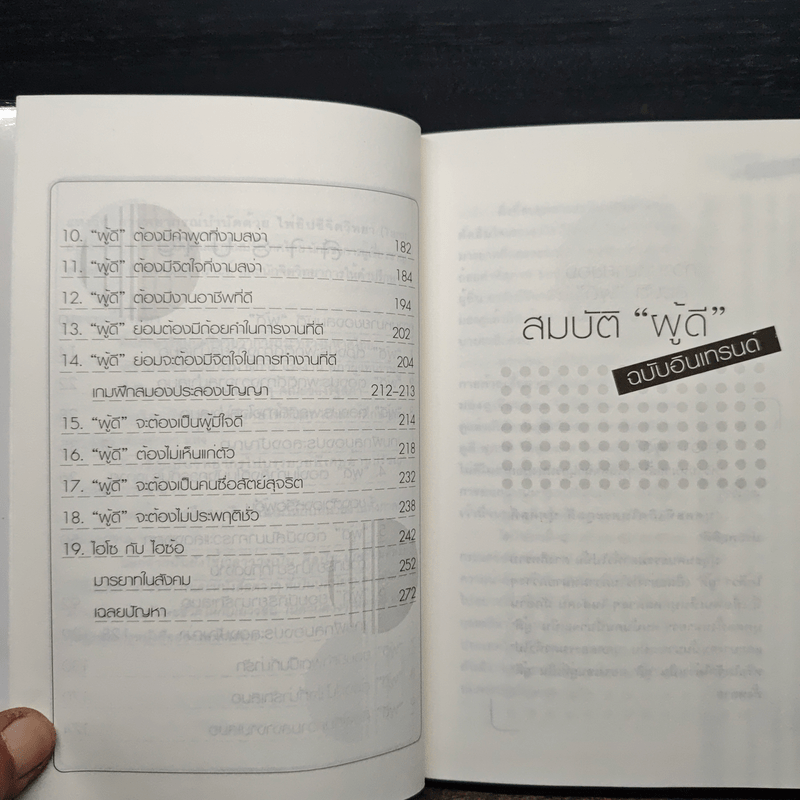 10. “ผู้ดี” ต้องมีคำพูดที่งามสง่า 182
11. “ผู้ดี” ต้องมีจิตใจที่งามสง่า 184
12. “ผู้ดี” ต้องมีงานอาชีพที่ดี 194
13. “ผู้ดี” ย่อมต้องมีถ้อยคำในการงานที่ดี 202
14. “ผู้ดี” ย่อมจะต้องมีจิตใจในการทำงานที่ดี 204
เกมฝึกสมองประลองปัญญา 212–213
15. “ผู้ดี” จะต้องเป็นผู้มีใจดี 214
16. “ผู้ดี” ต้องไม่เห็นแก่ตัว 218
17. “ผู้ดี” จะต้องเป็นคนซื่อสัตย์สุจริต 232
18. “ผู้ดี” จะต้องไม่ประพฤติชั่ว 238
19. ไฮโซ กับ ไฮซ้อ 242
มารยาทในสังคม 252
เฉลยปัญหา 272
สมบัติ “ผู้ดี”
ฉบับอินเทรนด์